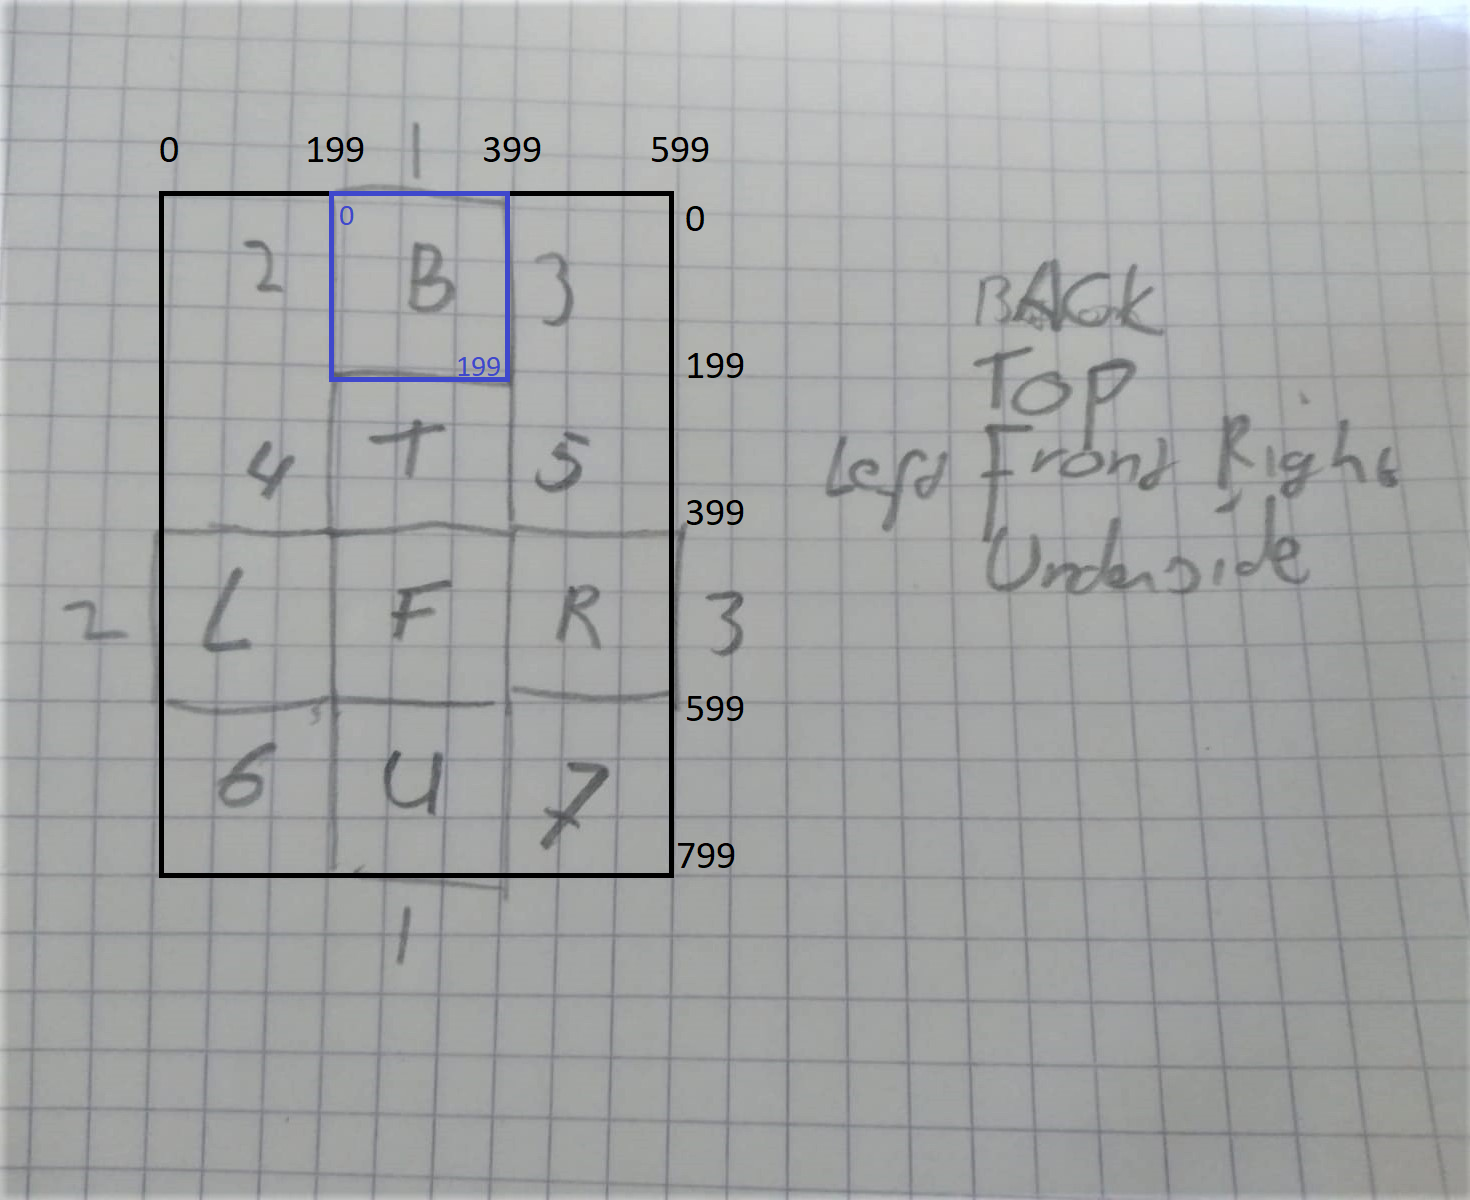 0 199 1 399 599
0 0
2 B 3
199 199
4 T 5
399
2 L F R 3
599
6 U 7
799
1
BACK
TOP
Left Front Right
Underside